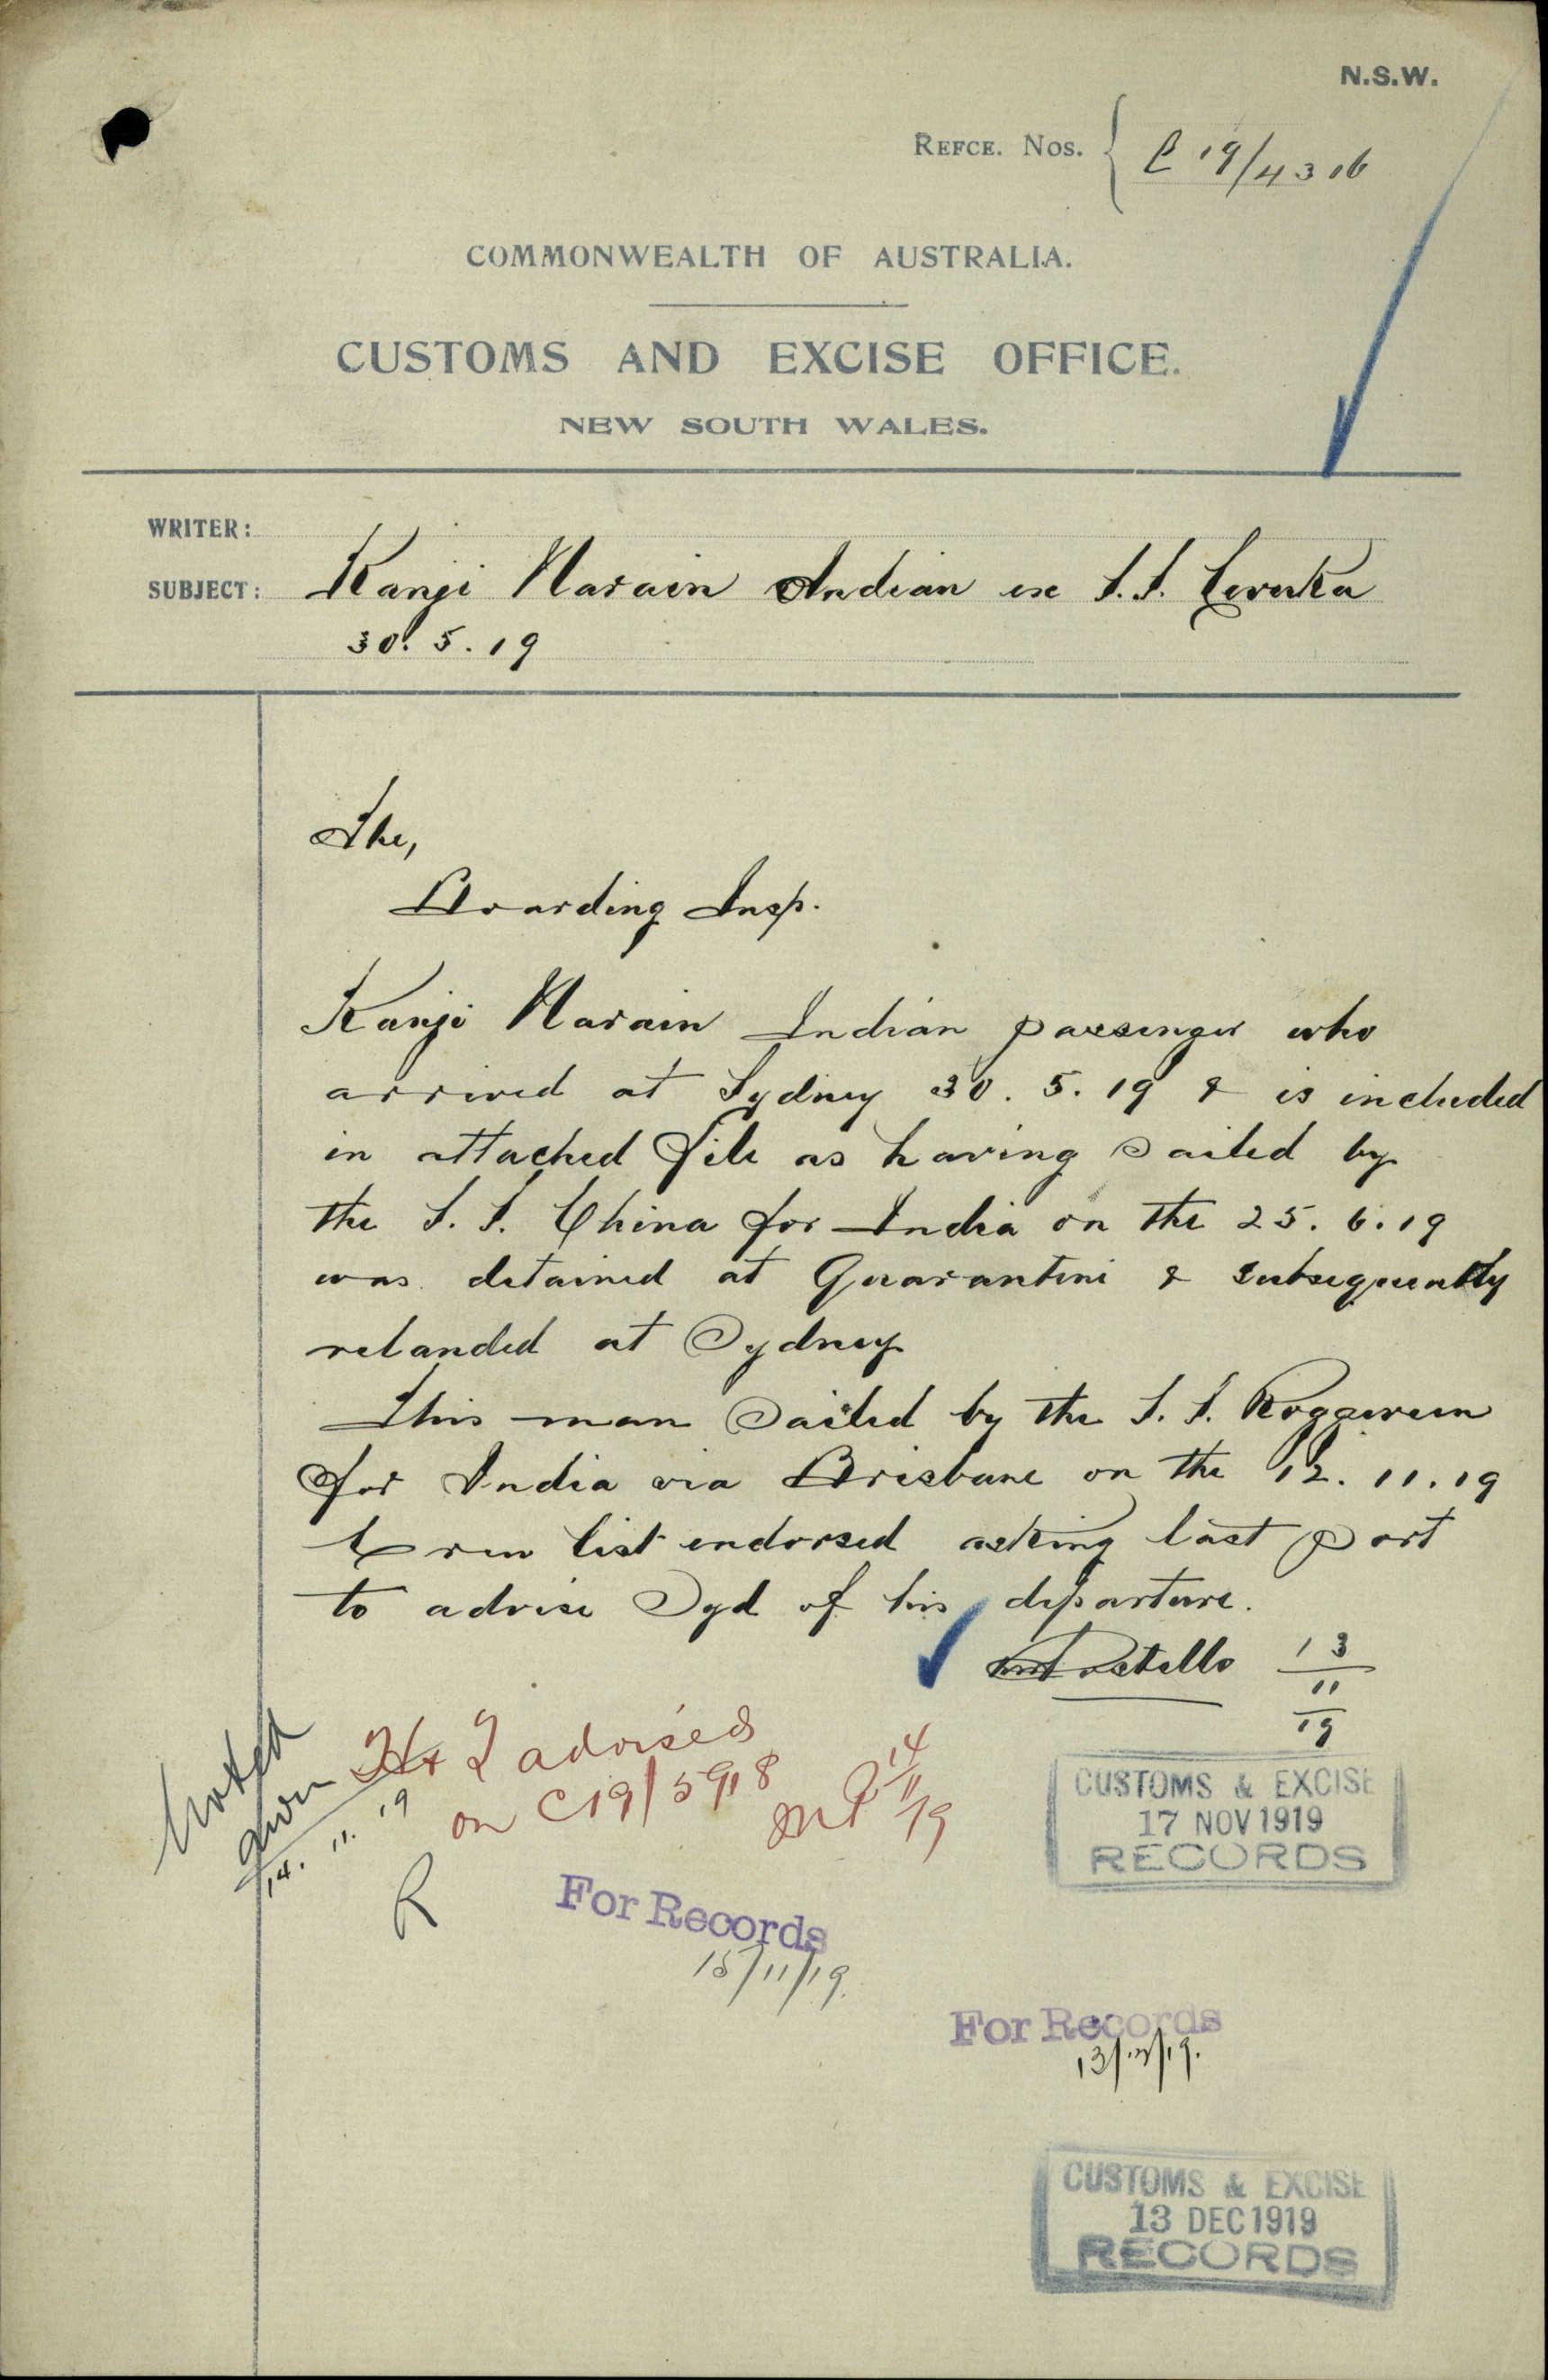 N.S.W.
REFCE. NOS. { C 19/4316
COMMONWEALTH OF AUSTRALIA.
CUSTOMS AND EXCISE OFFICE.
NEW SOUTH WALES.
WRITER:
SUBJECT: Kanji Narain Indian ex S.S. Levuka
30.5.19
The,
Boarding Insp.
Kanji Narain Indian passenger who
arrived at Sydney 30.5.19 & is included
in attached file as having sailed by
the S.S. China for India on the 25.6.19
was detained at Quarantine & subsequently
relanded at Sydney
This man sailed by the S.S. Roggeveen
for India via Brisbane on the 12.11.19
Crew list endorsed asking last port
to advise Syd of his departure.
Costello 13/11/19
Noted
14.11.19
H & T advised
on C19/5918
14/11/19
CUSTOMS & EXCISE
17 NOV 1919
RECORDS
R
For Records
15/11/19.
For Records
13/12/19.
CUSTOMS & EXCISE
13 DEC 1919
RECORDS